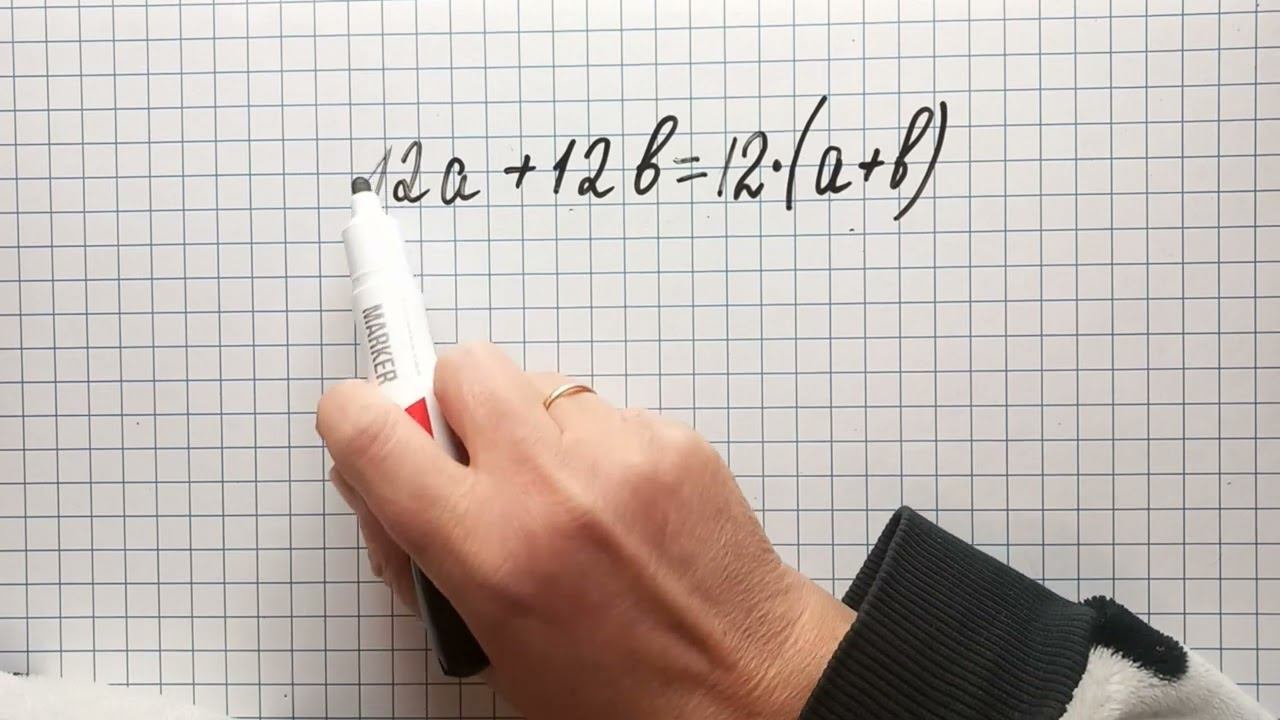 12a + 12b = 12·(a+b)
MARKER